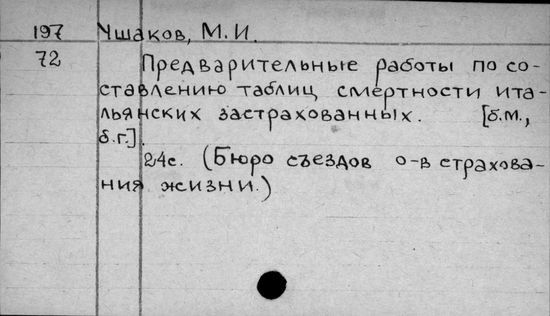 197 Ушаков, М. И.
72 Предварительные работы по со-
ставлению таблиц смертности ита-
льянских застрахованных. [б.м.,
б.г.].
24с. (Бюро съездов о-в страхова-
ния жизни.)